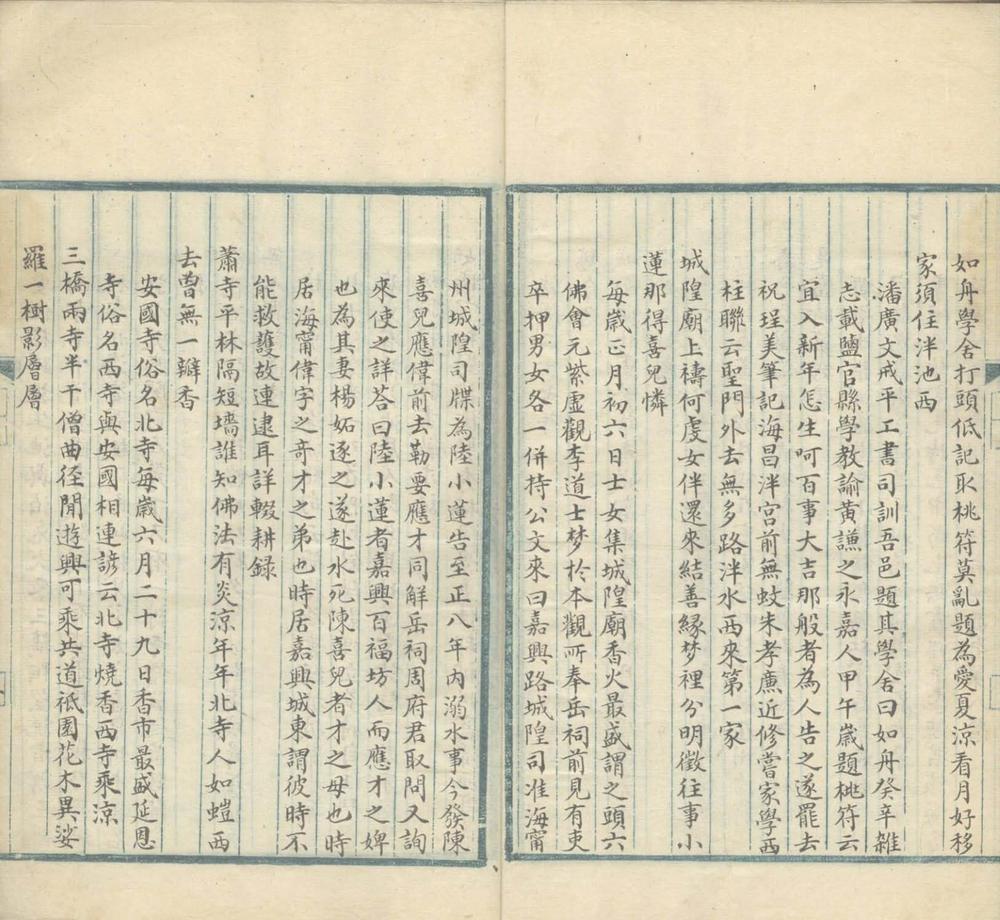 如舟學舍打頭低記取桃符莫亂題為愛夏涼看月好移
家須住泮池西
潘廣文戒平工書司訓吾邑題其學舍曰如舟癸辛雜
志載鹽官縣學教諭黃謙之永嘉人甲午歲題桃符云
宜入新年怎生呵百事大吉那般者為人告之遂罷去
祝珵美筆記海昌泮宮前無蚊朱孝廉近修嘗家學西
柱聯云聖門外去無多路泮水西來第一家
城隍廟上禱何虔女伴還來結善緣梦裡分明徵往事小
蓮那得喜兒憐
每歲正月初六日士女集城隍廟香火最盛謂之頭六
佛會元紫虛觀李道士梦於本觀所奉岳祠前見有吏
卒押男女各一併持公文來曰嘉興路城隍司准海甯
州城隍司牒為陸小蓮告至正八年內溺水事今發陳
喜兒應偉前去勒要應才同解岳祠周府君取問又詢
來使之詳荅曰陸小蓮者嘉興百福坊人而應才之婢
也為其妻楊妬逐之遂赴水死陳喜兒者才之母也時
居海甯偉字之奇才之弟也時居嘉興城東謂彼時不
能救護故連逮耳詳輟耕録
蕭寺平林隔短墻誰知佛法有炎涼年年北寺人如螘西
去曽無一瓣香
安國寺俗名北寺每歲六月二十九日香市最盛延恩
寺俗名西寺與安國相連諺云北寺燒香西寺乘涼
三橋兩寺半干僧曲徑閒遊興可乘共道祇園花木異娑
羅一樹影層層